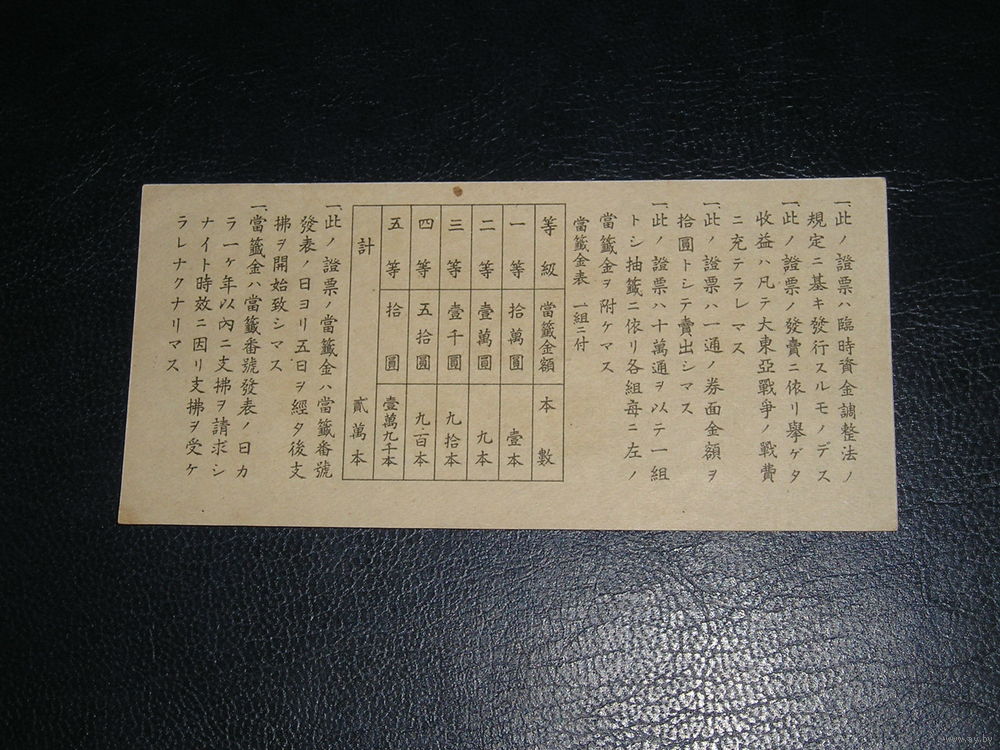 一、此ノ證票ハ臨時資金調整法ノ
規定ニ基キ發行スルモノデス
一、此ノ證票ノ發賣ニ依リ擧ゲタ
收益ハ凡テ大東亞戰爭ノ戰費
ニ充テラレマス
一、此ノ證票ハ一通ノ券面金額ヲ
拾圓トシテ賣出シマス
一、此ノ證票ハ十萬通ヲ以テ一組
トシ抽籤ニ依リ各組每ニ左ノ
當籤金ヲ附ケマス
當籤金表 一組ニ付
等級 當籤金額 本數
一等 拾萬圓 壹本
二等 壹萬圓 九本
三等 壹千圓 九拾本
四等 五拾圓 九百本
五等 拾圓 壹萬九千本
計 貳萬本
一、此ノ證票ノ當籤金ハ當籤番號
發表ノ日ヨリ五日ヲ經タ後支
拂ヲ開始致シマス
一、當籤金ハ當籤番號發表ノ日カ
ラ一ヶ年以內ニ支拂ヲ請求シ
ナイト時效ニ因リ支拂ヲ受ケ
ラレナクナリマス
www.ay.by